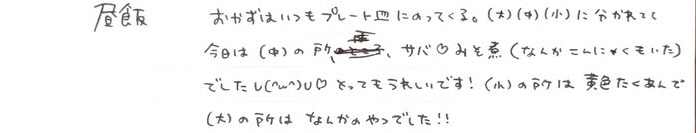 昼飯 おかずはいつもプレート皿にのってくる。(大)(中)(小)に分かれてて
今日は(中)の所、サバ♡みそ煮(なんかこんにゃくもいた)
でしたU(^ω^)U♡とってもうれしいです!(小)の所は黄色たくあんで
(大)の所はなんかのやつでした!!